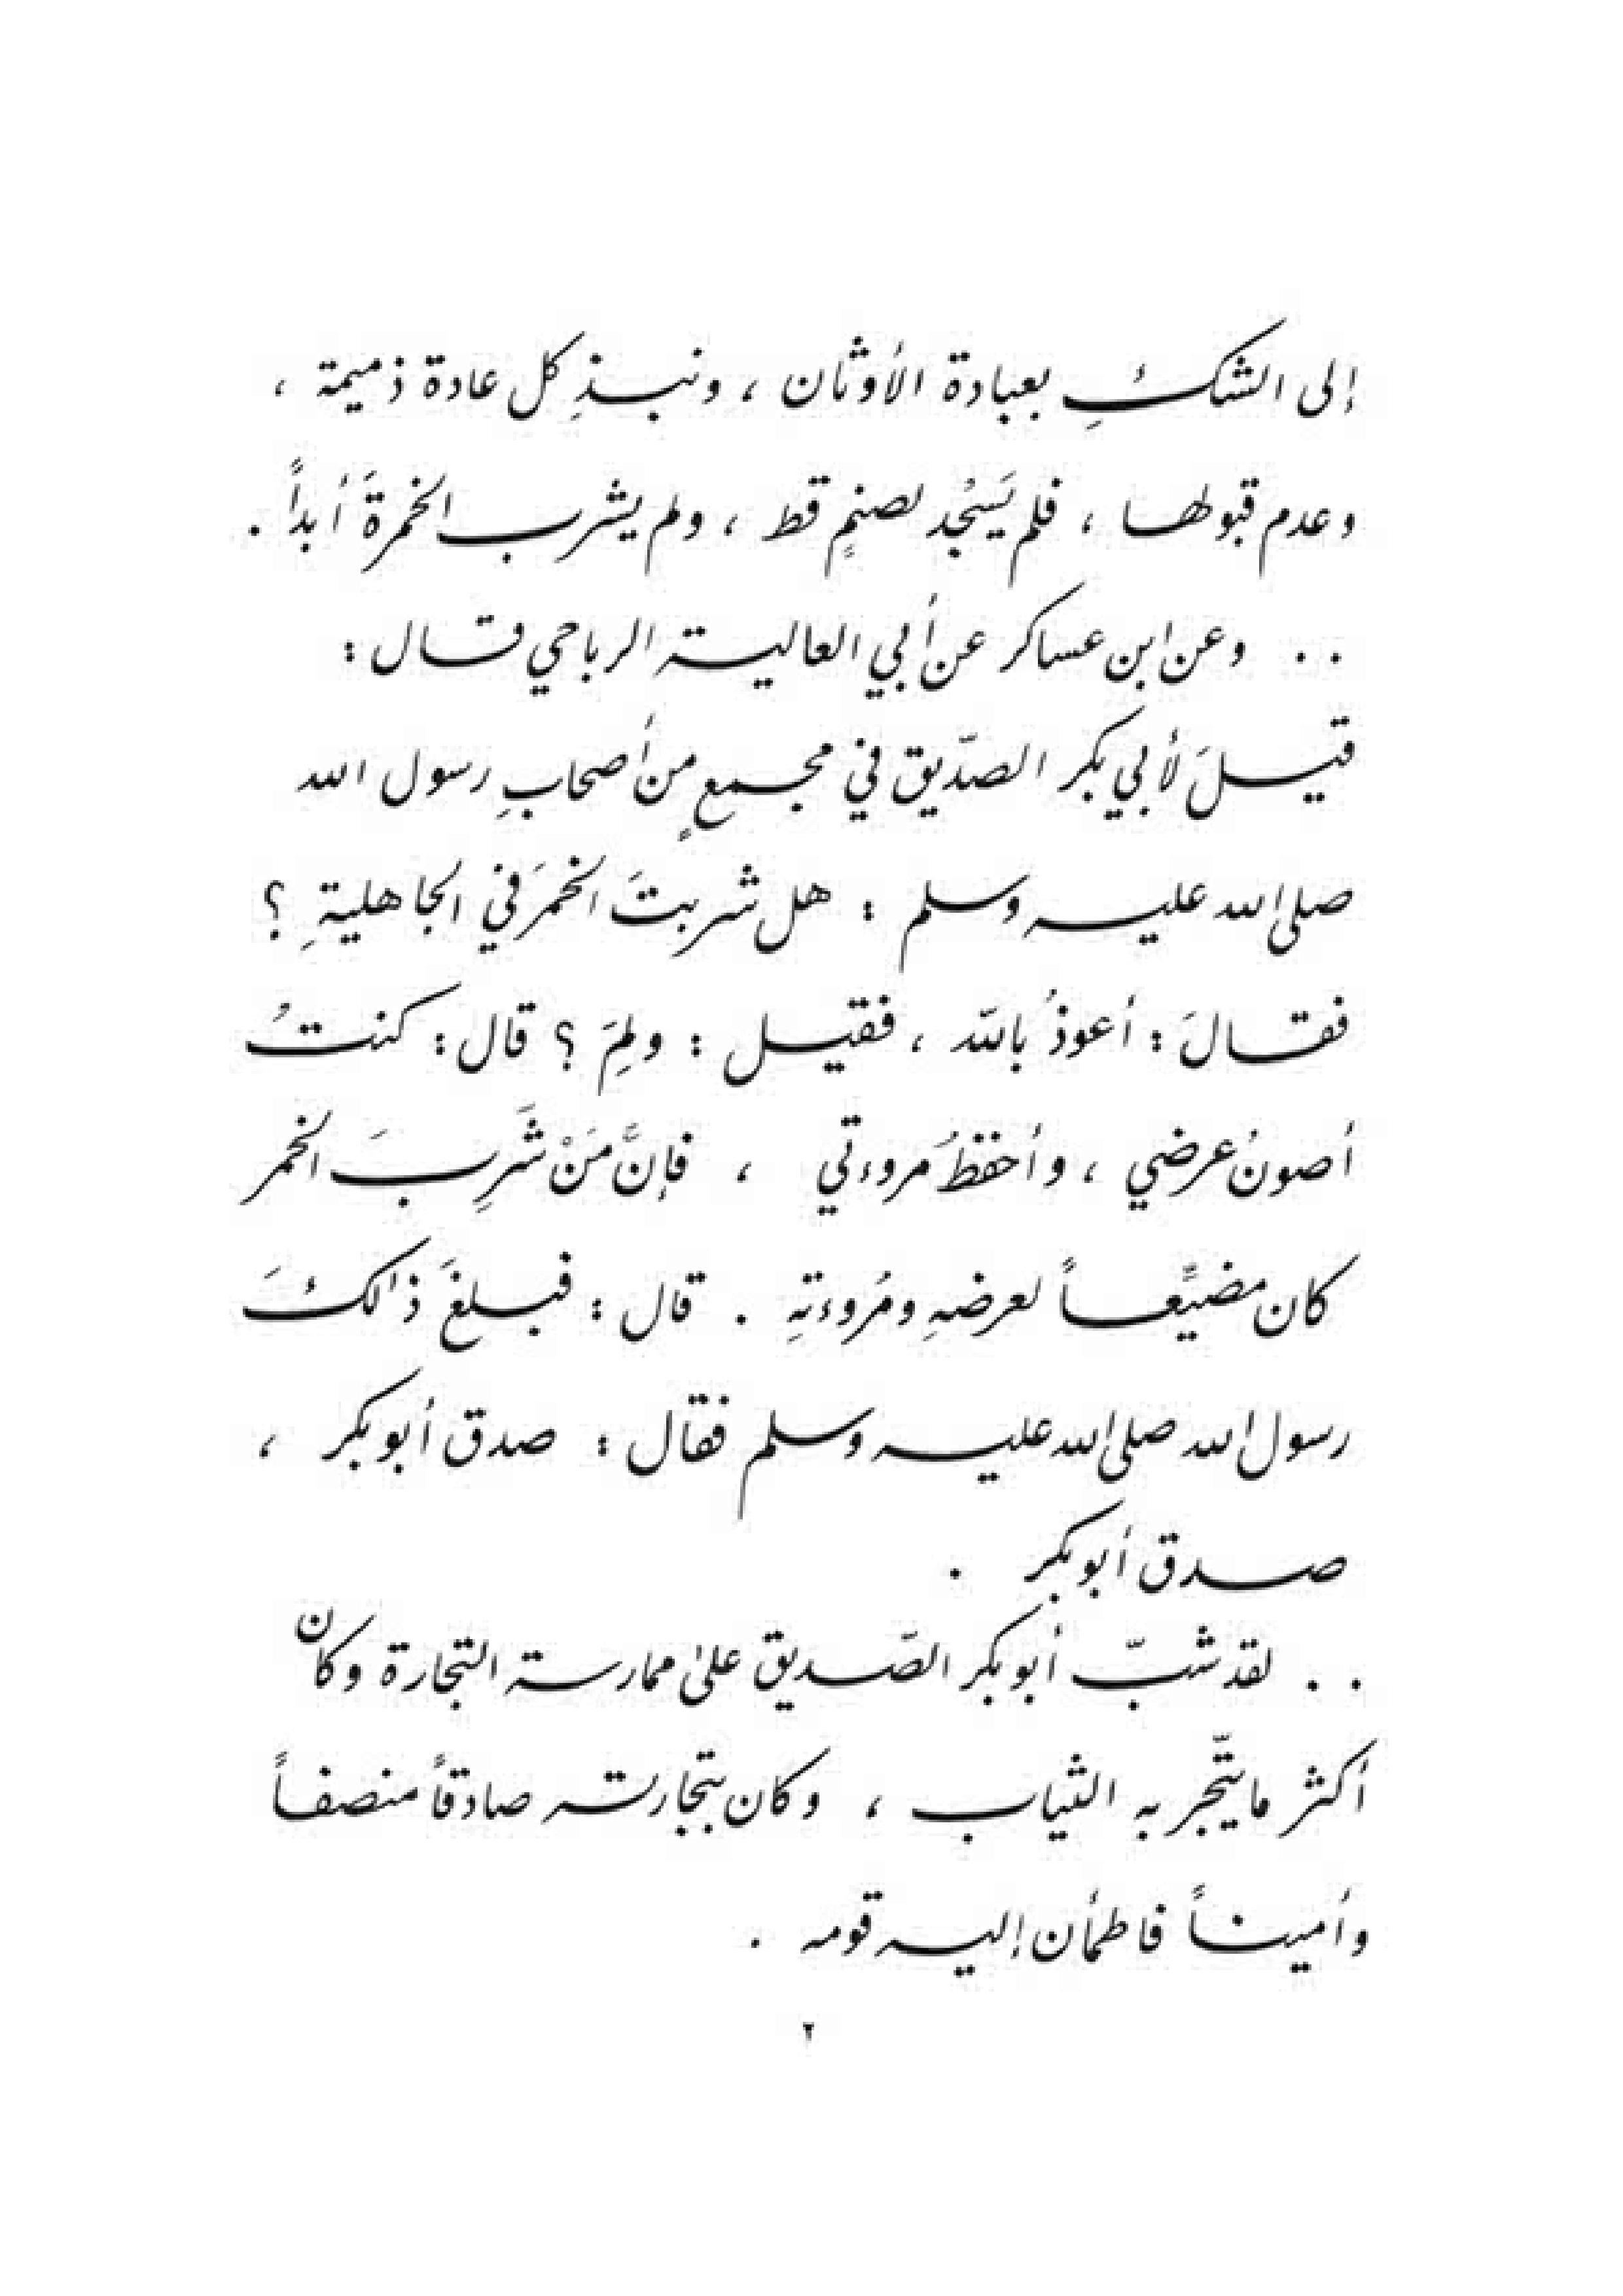 إلى الشكِ بعبادة الأوثان ، ونبذِ كل عادة ذميمة ،
وعدم قبولها ، فلم يَسجُد لصنمٍ قط ، ولم يشرب الخمرةَ أبداً .
. . وعن ابن عساكر عن أبي العالية الرباحي قال :
قيلَ لأبي بكر الصدّيق في مجمعٍ من أصحابِ رسول الله
صلى الله عليه وسلم : هل شربتَ الخمرَ في الجاهليةِ ؟
فقالَ : أعوذُ بالله ، فقيل : ولِمَ ؟ قال : كنتُ
أصونُ عرضي ، وأحفظُ مروءتي ، فإنَّ مَنْ شَرِبَ الخمر
كان مضيِّعاً لعرضهِ ومُروءتهِ . قال : فبلغَ ذالكَ
رسول الله صلى الله عليه وسلم فقال : صدق أبو بكر ،
صدق أبو بكر .
. . لقد شبّ أبو بكر الصّديق على ممارسة التجارة وكان
أكثر ما يتّجر به الثياب ، وكان بتجارته صادقاً منصفاً
وأميناً فاطمأن إليه قومه .
٢